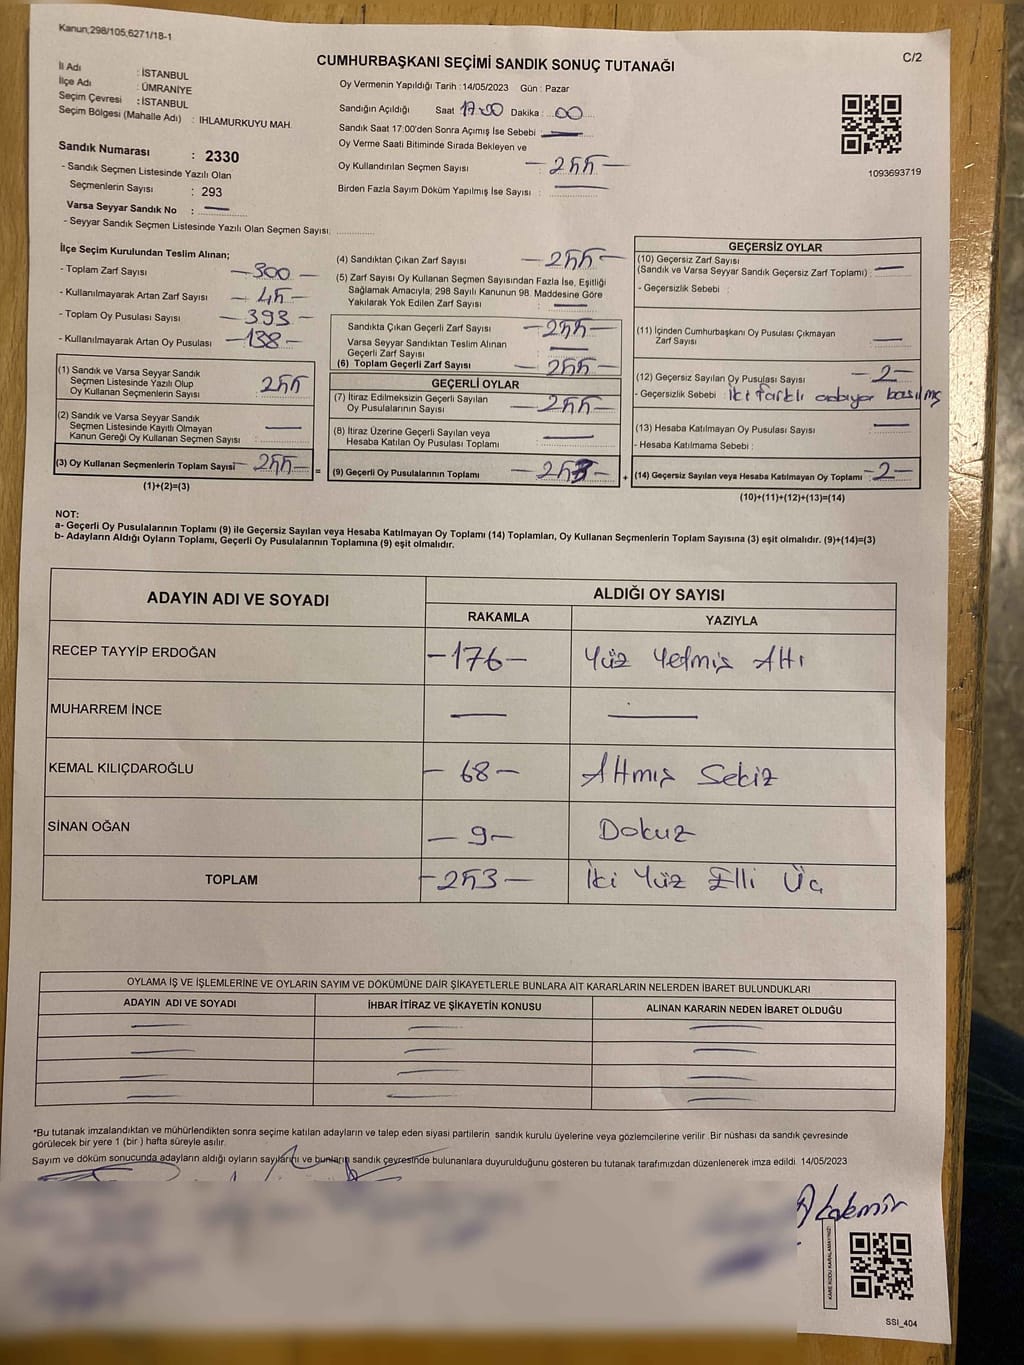 Kanun;298/105;6271/18-1
C/2
CUMHURBAŞKANI SEÇİMİ SANDIK SONUÇ TUTANAĞI
İl Adı : İSTANBUL
İlçe Adı : ÜMRANİYE
Seçim Çevresi : İSTANBUL
Seçim Bölgesi (Mahalle Adı) : IHLAMURKUYU MAH.
Sandık Numarası : 2330
- Sandık Seçmen Listesinde Yazılı Olan
Seçmenlerin Sayısı : 293
Varsa Seyyar Sandık No : —
- Seyyar Sandık Seçmen Listesinde Yazılı Olan Seçmen Sayısı:
Oy Vermenin Yapıldığı Tarih : 14/05/2023 Gün : Pazar
Sandığın Açıldığı Saat 17:00 Dakika : 00
Sandık Saat 17:00'den Sonra Açımış İse Sebebi : —
Oy Verme Saati Bitiminde Sırada Bekleyen ve
Oy Kullandırılan Seçmen Sayısı : — 255 —
Birden Fazla Sayım Döküm Yapılmış İse Sayısı : —
1093693719
İlçe Seçim Kurulundan Teslim Alınan;
- Toplam Zarf Sayısı — 300 —
- Kullanılmayarak Artan Zarf Sayısı — 45 —
- Toplam Oy Pusulası Sayısı — 393 —
- Kullanılmayarak Artan Oy Pusulası — 138 —
(1) Sandık ve Varsa Seyyar Sandık
Seçmen Listesinde Yazılı Olup
Oy Kullanan Seçmenlerin Sayısı 255
(2) Sandık ve Varsa Seyyar Sandık
Seçmen Listesinde Kayıtlı Olmayan
Kanun Gereği Oy Kullanan Seçmen Sayısı —
(3) Oy Kullanan Seçmenlerin Toplam Sayısı — 255 — =
(1)+(2)=(3)
(4) Sandıktan Çıkan Zarf Sayısı — 255 —
(5) Zarf Sayısı Oy Kullanan Seçmen Sayısından Fazla İse, Eşitliği
Sağlamak Amacıyla; 298 Sayılı Kanunun 98. Maddesine Göre
Yakılarak Yok Edilen Zarf Sayısı —
Sandıkta Çıkan Geçerli Zarf Sayısı — 255 —
Varsa Seyyar Sandıktan Teslim Alınan
Geçerli Zarf Sayısı —
(6) Toplam Geçerli Zarf Sayısı — 255 —
GEÇERLİ OYLAR
(7) İtiraz Edilmeksizin Geçerli Sayılan
Oy Pusulalarının Sayısı — 255 —
(8) İtiraz Üzerine Geçerli Sayılan veya
Hesaba Katılan Oy Pusulası Toplamı —
(9) Geçerli Oy Pusulalarının Toplamı — 253 — +
GEÇERSİZ OYLAR
(10) Geçersiz Zarf Sayısı
(Sandık ve Varsa Seyyar Sandık Geçersiz Zarf Toplamı) : —
- Geçersizlik Sebebi :
(11) İçinden Cumhurbaşkanı Oy Pusulası Çıkmayan
Zarf Sayısı —
(12) Geçersiz Sayılan Oy Pusulası Sayısı — 2 —
- Geçersizlik Sebebi : İki farklı adaya basılmış
(13) Hesaba Katılmayan Oy Pusulası Sayısı —
- Hesaba Katılmama Sebebi :
(14) Geçersiz Sayılan veya Hesaba Katılmayan Oy Toplamı — 2 —
(10)+(11)+(12)+(13)=(14)
NOT:
a- Geçerli Oy Pusulalarının Toplamı (9) ile Geçersiz Sayılan veya Hesaba Katılmayan Oy Toplamı (14) Toplamları, Oy Kullanan Seçmenlerin Toplam Sayısına (3) eşit olmalıdır. (9)+(14)=(3)
b- Adayların Aldığı Oyların Toplamı, Geçerli Oy Pusulalarının Toplamına (9) eşit olmalıdır.
ADAYIN ADI VE SOYADI ALDIĞI OY SAYISI
RAKAMLA YAZIYLA
RECEP TAYYİP ERDOĞAN — 176 — Yüz Yetmiş Altı
MUHARREM İNCE — —
KEMAL KILIÇDAROĞLU — 68 — Altmış Sekiz
SİNAN OĞAN — 9 — Dokuz
TOPLAM — 253 — İki Yüz Elli Üç
OYLAMA İŞ VE İŞLEMLERİNE VE OYLARIN SAYIM VE DÖKÜMÜNE DAİR ŞİKAYETLERLE BUNLARA AİT KARARLARIN NELERDEN İBARET BULUNDUKLARI
ADAYIN ADI VE SOYADI İHBAR İTİRAZ VE ŞİKAYETİN KONUSU ALINAN KARARIN NEDEN İBARET OLDUĞU
— — —
— — —
— — —
— — —
*Bu tutanak imzalandıktan ve mühürlendikten sonra seçime katılan adayların ve talep eden siyasi partilerin sandık kurulu üyelerine veya gözlemcilerine verilir. Bir nüshası da sandık çevresinde
görülecek bir yere 1 (bir ) hafta süreyle asılır.
Sayım ve döküm sonucunda adayların aldığı oyların sayılarını ve bunların sandık çevresinde bulunanlara duyurulduğunu gösteren bu tutanak tarafımızdan düzenlenerek imza edildi. 14/05/2023
KARE KODU KARALAMAYINIZ!
SSI_404